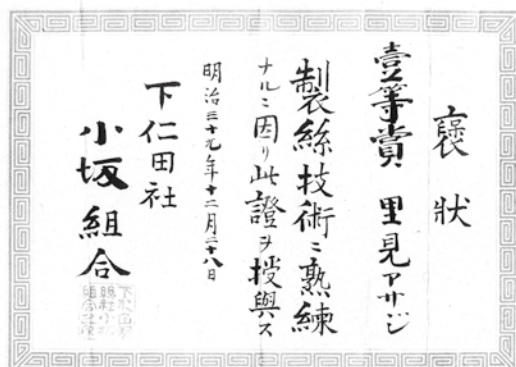 褒狀
壹等賞 里見アサジ
製絲技術ニ熟練
ナルニ因リ此證ヲ授與ス
明治三十九年十二月二十八日
下仁田社
小坂組合